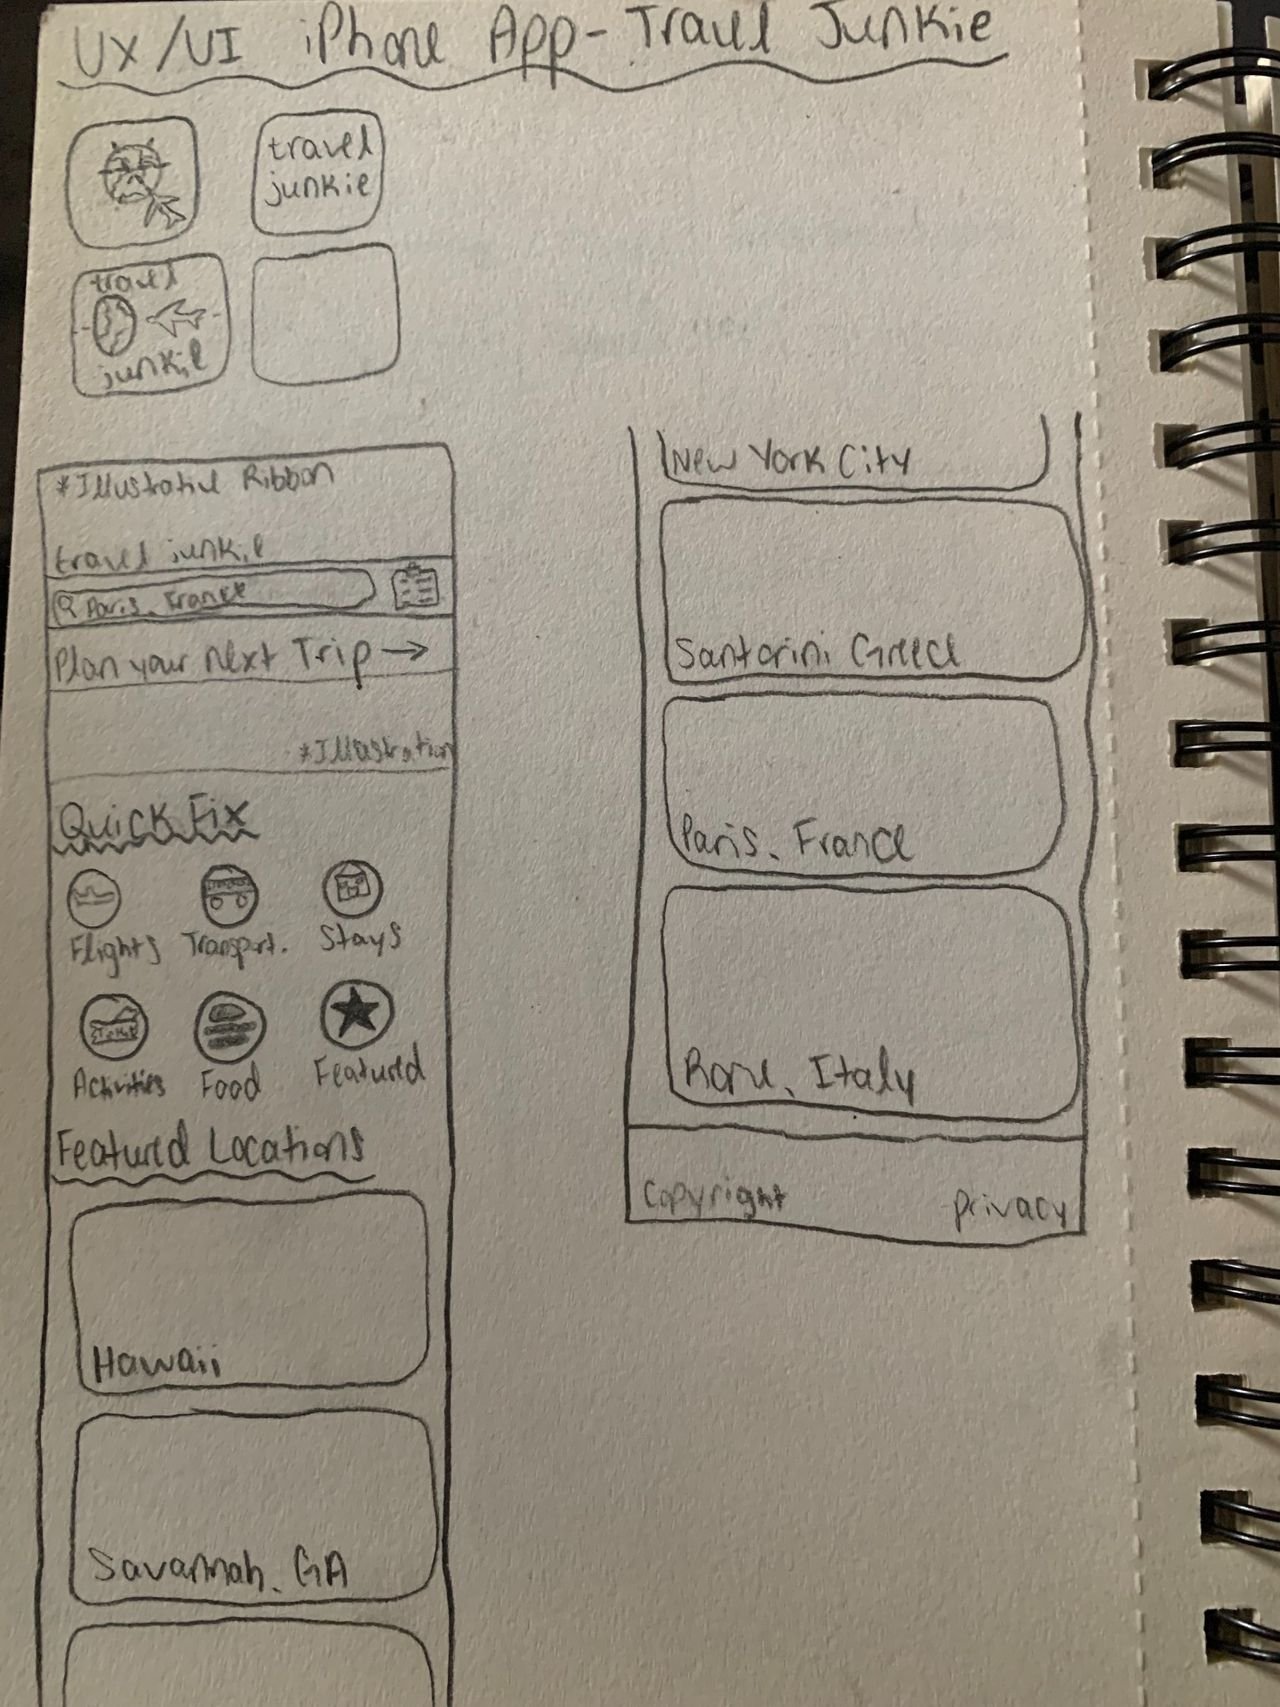 UX/UI iPhone App- Travel Junkie
travel
junkie
travel
junkie
*Illustrative Ribbon
travel junkie
Paris, France
Plan your Next Trip →
*Illustration
Quick Fix
Flights Transport. Stays
Ticket
Activities Food Featured
Featured Locations
Hawaii
Savannah, GA
New York City
Santorini Greece
Paris, France
Rome, Italy
Copyright privacy